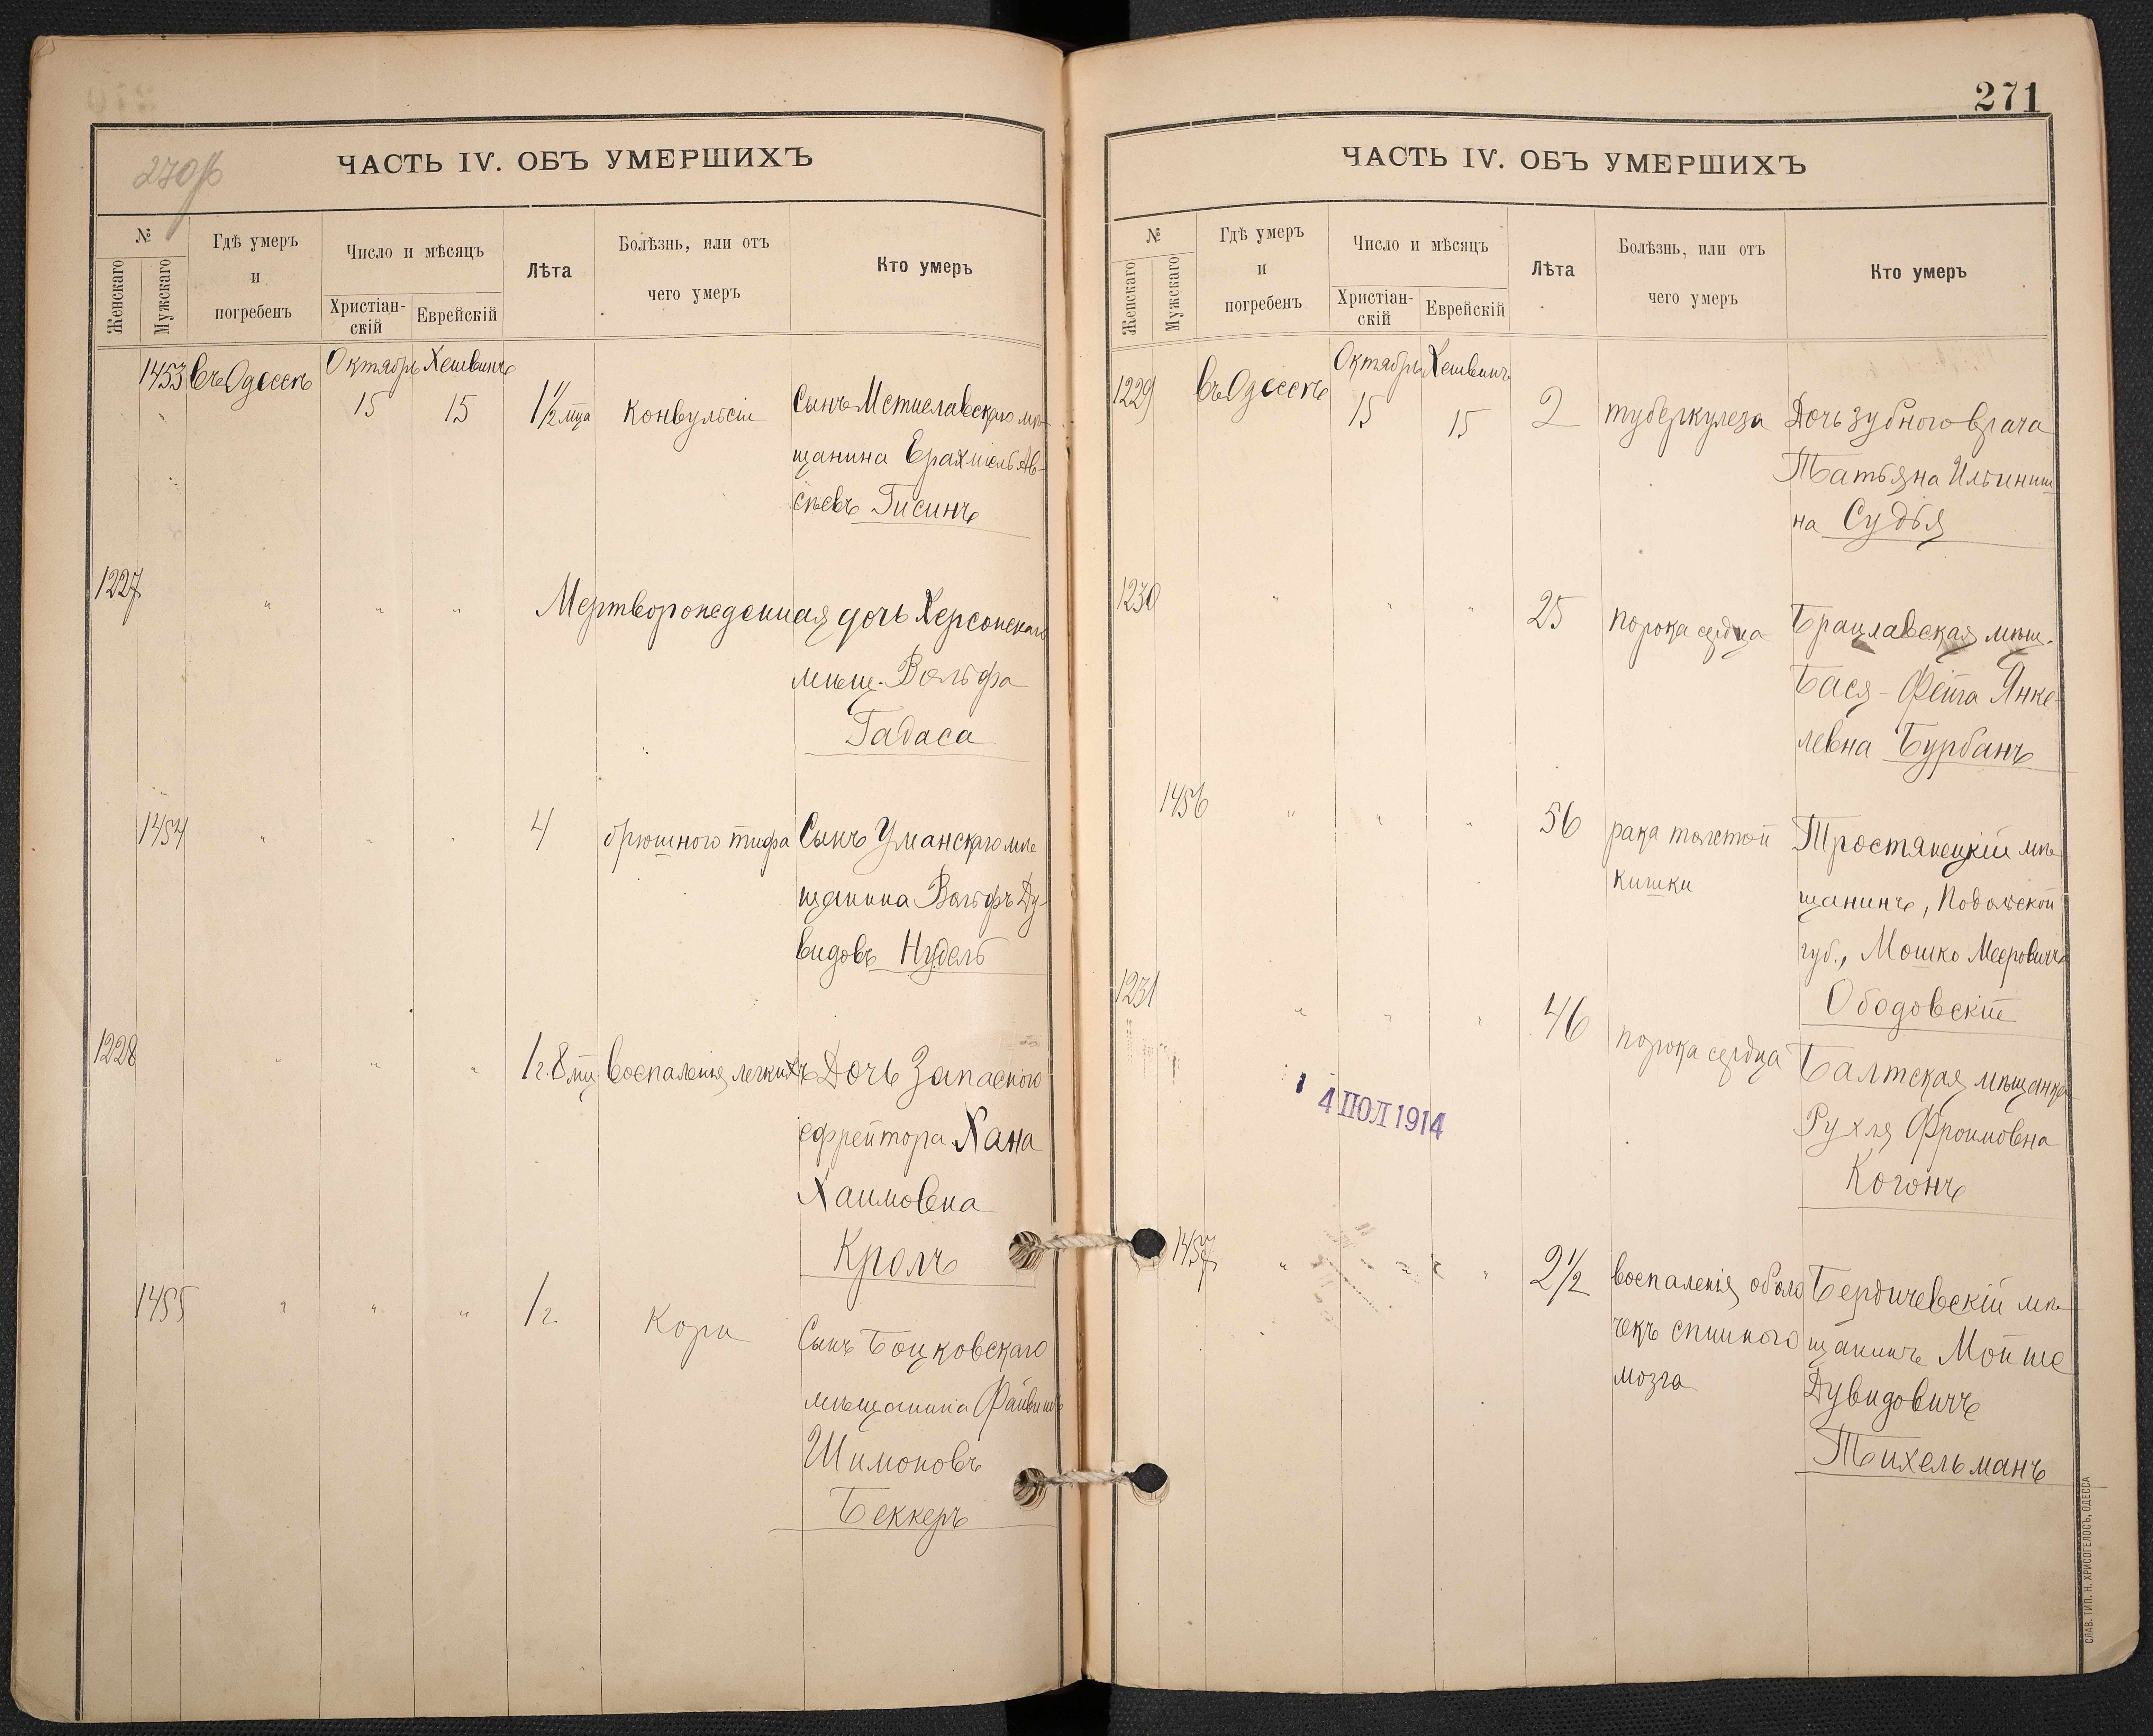 270об
ЧАСТЬ IV. ОБЪ УМЕРШИХЪ
№
Женскаго
Мужскаго
Гдѣ умеръ
и
погребенъ
Число и мѣсяцъ
Христіан-
скій
Еврейскій
Лѣта
Болѣзнь, или отъ
чего умеръ
Кто умеръ
1453
въ Одессѣ
Октябрь
15
Хешвинъ
15
1 1/2 мца
Конвульсіи
Сынъ Мстиславскаго мѣ-
щанина Ерахміель Ав-
сѣевъ Гисинъ
1227
"
"
"
Мертворожденная дочь Херсонскаго
мѣщ. Вольфа
Гадаса
1454
"
"
"
4
брюшного тифа
Сынъ Уманскаго мѣ
щанина Вольфъ Ду-
видовъ Нудель
1228
"
"
"
1 г. 8 мц
воспаленія легкихъ
Дочь Запасного
ефрейтора Хана
Хаимовна
Кролъ
1455
"
"
"
1 г.
Кори
Сынъ Боцковскаго
мѣщанина Файвишъ
Шимоновъ
Беккеръ
271
ЧАСТЬ IV. ОБЪ УМЕРШИХЪ
№
Женскаго
Мужскаго
Гдѣ умеръ
и
погребенъ
Число и мѣсяцъ
Христіан-
скій
Еврейскій
Лѣта
Болѣзнь, или отъ
чего умеръ
Кто умеръ
1229
въ Одессѣ
Октябрь
15
Хешвинъ
15
2
туберкулеза
Дочь зубного врача
Татьяна Ильиниш
на Судья
1230
"
"
"
25
порока сердца
Брацлавская мѣщ.
Бася-Фейга Янке-
левна Бурбанъ
1456
"
"
"
56
рака толстой
кишки
Тростянецкій мѣ
щанинъ, Подольской
губ., Мошко Мееровичъ
Ободовскій
1231
"
"
"
46
порока сердца
Балтская мѣщанка
Рухля Фроимовна
Когонъ
4 ІЮЛ 1914
1457
"
"
"
2 1/2
воспаленія оболо
чекъ спинного
мозга
Бердичевскій мѣ
щанинъ Мойше
Дувидовичъ
Тихельманъ
СЛАВ. ТИП. Н. ХРИСОГЕЛОСЪ, ОДЕССА